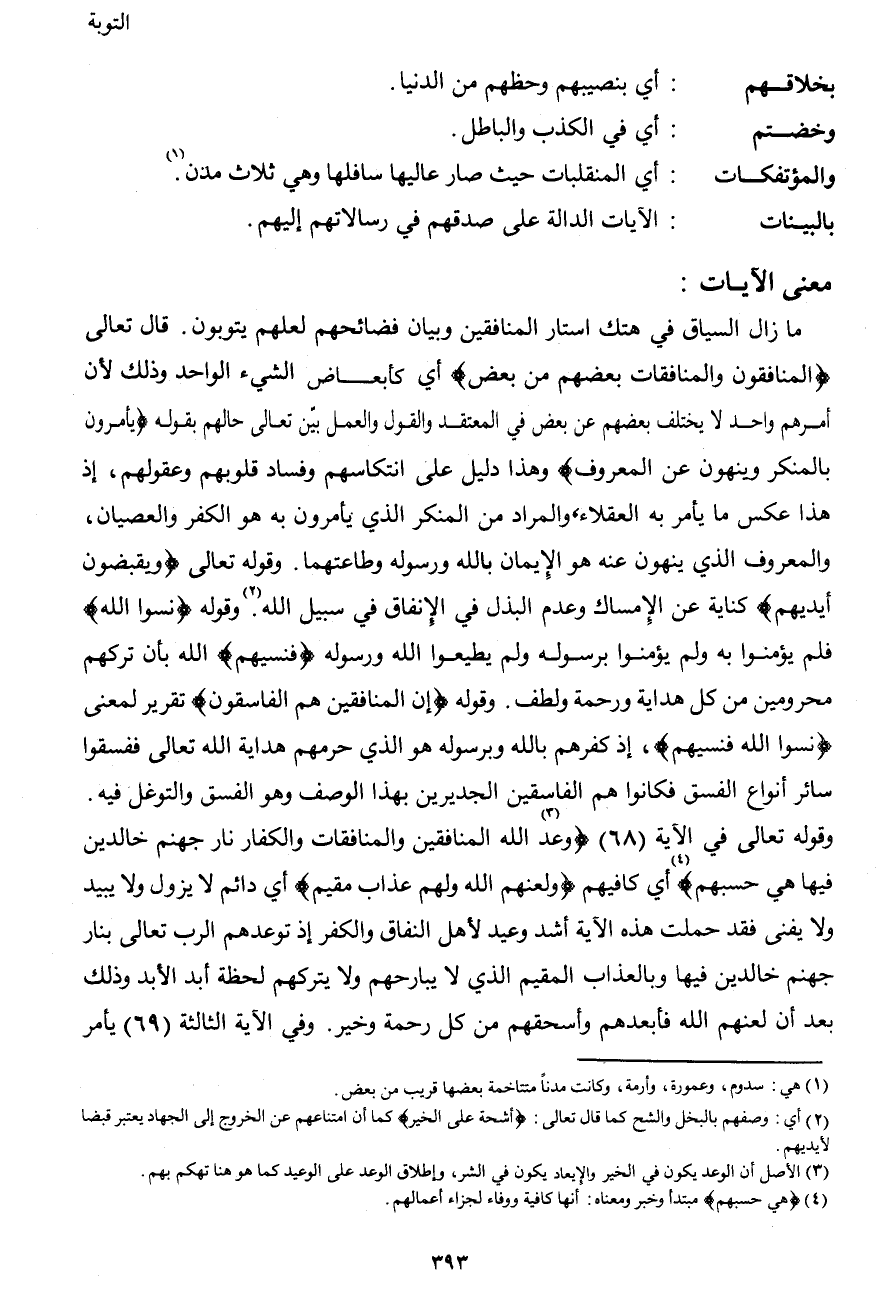 التوبة
بخلاقهم : أي بنصيبهم وحظهم من الدنيا.
وخضتم : أي في الكذب والباطل.
والمؤتفكات : أي المنقلبات حيث صار عاليها سافلها وهي ثلاث مدن.(١)
بالبينات : الآيات الدالة على صدقهم في رسالاتهم إليهم.
معنى الآيات :
ما زال السياق في هتك استار المنافقين وبيان فضائحهم لعلهم يتوبون. قال تعالى
﴿المنافقون والمنافقات بعضهم من بعض﴾ أي كأبعاض الشيء الواحد وذلك لأن
أمرهم واحد لا يختلف بعضهم عن بعض في المعتقد والقول والعمل بيّن تعالى حالهم بقوله ﴿يأمرون
بالمنكر وينهون عن المعروف﴾ وهذا دليل على انتكاسهم وفساد قلوبهم وعقولهم، إذ
هذا عكس ما يأمر به العقلاء، والمراد من المنكر الذي يأمرون به هو الكفر والعصيان،
والمعروف الذي ينهون عنه هو الإيمان بالله ورسوله وطاعتهما. وقوله تعالى ﴿ويقبضون
أيديهم﴾ كناية عن الإمساك وعدم البذل في الإنفاق في سبيل الله.(٢) وقوله ﴿نسوا الله﴾
فلم يؤمنوا به ولم يؤمنوا برسوله ولم يطيعوا الله ورسوله ﴿فنسيهم﴾ الله بأن تركهم
محرومين من كل هداية ورحمة ولطف. وقوله ﴿إن المنافقين هم الفاسقون﴾ تقرير لمعنى
﴿نسوا الله فنسيهم﴾، إذ كفرهم بالله وبرسوله هو الذي حرمهم هداية الله تعالى ففسقوا
سائر أنواع الفسق فكانوا هم الفاسقين الجديرين بهذا الوصف وهو الفسق والتوغل فيه.
وقوله تعالى في الآية (٦٨) ﴿وعد(٣) الله المنافقين والمنافقات والكفار نار جهنم خالدين
فيها هي حسبهم﴾(٤) أي كافيهم ﴿ولعنهم الله ولهم عذاب مقيم﴾ أي دائم لا يزول ولا يبيد
ولا يفنى فقد حملت هذه الآية أشد وعيد لأهل النفاق والكفر إذ توعدهم الرب تعالى بنار
جهنم خالدين فيها وبالعذاب المقيم الذي لا يبارحهم ولا يتركهم لحظة أبد الأبد وذلك
بعد أن لعنهم الله فأبعدهم وأسحقهم من كل رحمة وخير. وفي الآية الثالثة (٦٩) يأمر
(١) هي : سدوم، وعمورة، وأرمة، وكانت مدناً متتاخمة بعضها قريب من بعض.
(٢) أي : وصفهم بالبخل والشح كما قال تعالى : ﴿أشحة على الخير﴾ كما أن امتناعهم عن الخروج إلى الجهاد يعتبر قبضا
لأيديهم.
(٣) الأصل أن الوعد يكون في الخير والإيعاد يكون في الشر، وإطلاق الوعد على الوعيد كما هو هنا تهكم بهم.
(٤) ﴿هي حسبهم﴾ مبتدأ وخبر ومعناه : أنها كافية ووفاء لجزاء أعمالهم.
٣٩٣